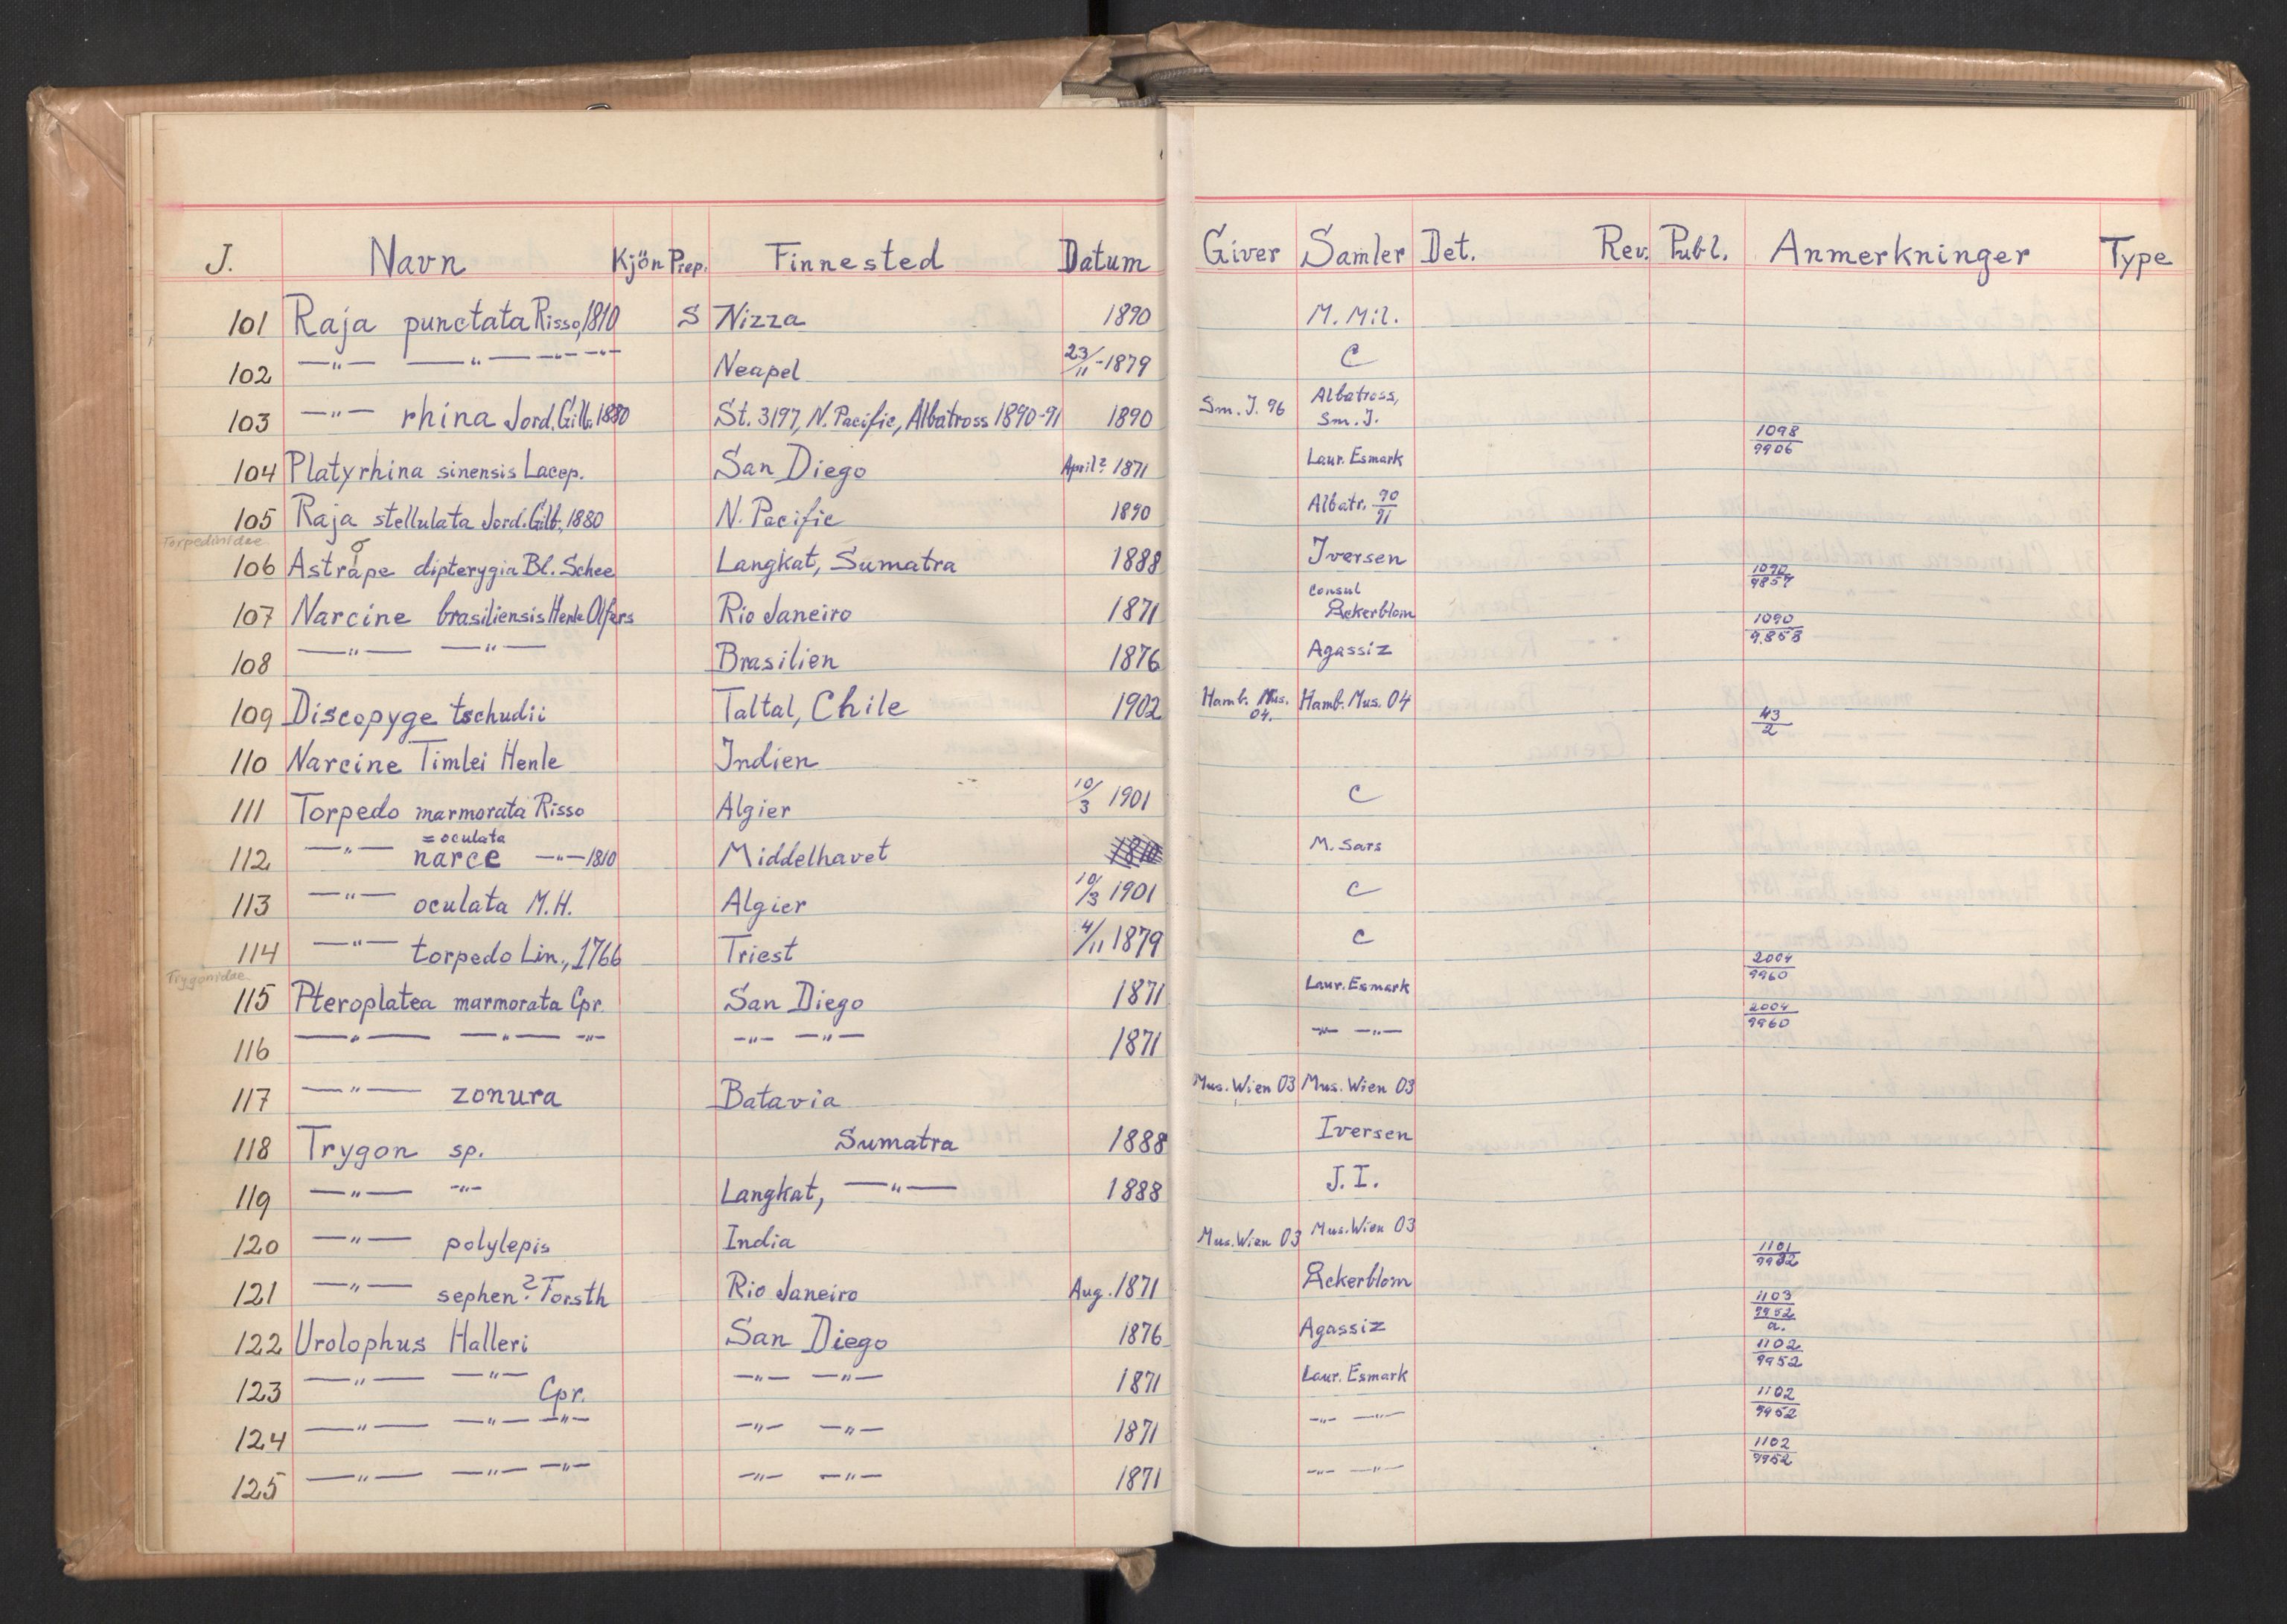 J. Navn Kjön Prep. Finnested Datum Giver Samler Det. Rev. Publ. Anmerkninger Type
101 Raja punctata Risso, 1810 S Nizza 1890 M. Mil.
102 —"— —"— —"— —"— Neapel 23/11-1879 C
103 —"— rhina Jord. Gilb. 1880 St. 3197, N. Pacific, Albatross 1890-91 1890 Sm. J. 96 Albatross, Sm. J.
104 Platyrhina sinensis Lacep. San Diego April? 1871 Laur. Esmark 1098/9906
105 Raja stellulata Jord. Gilb., 1880 N. Pacific 1890 Albatr. 90/91
Torpedinidae
106 Astrape dipterygia Bl. Schee Langkat, Sumatra 1888 Iversen
107 Narcine brasiliensis Henle Olfers Rio Janeiro 1871 Consul Åckerblom 1090/9857
108 —"— —"— Brasilien 1876 Agassiz 1090/9858
109 Discopyge tschudii Taltal, Chile 1902 Hamb. Mus. 04. Hamb. Mus. 04
110 Narcine Timlei Henle Indien 43/2
111 Torpedo marmorata Risso Algier 10/3 1901 C
= oculata
112 —"— narce —"— 1810 Middelhavet M. Sars
113 —"— oculata M.H. Algier 10/3 1901 C
114 —"— torpedo Lin., 1766 Triest 4/11 1879 C
Trygonidae
115 Pteroplatea marmorata Cpr. San Diego 1871 Laur. Esmark 2004/9960
116 —"— —"— —"— —"— —"— 1871 —"— —"— 2004/9960
117 —"— zonura Batavia Mus. Wien 03 Mus. Wien 03
118 Trygon sp. Sumatra 1888 Iversen
119 —"— —"— Langkat, —"— 1888 J. I.
120 —"— polylepis India Mus. Wien 03 Mus. Wien 03
121 —"— sephen? Forsth Rio Janeiro Aug. 1871 Åckerblom 1101/9932
122 Urolophus Halleri San Diego 1876 Agassiz 1103/9952 a.
123 —"— —"— Cpr. —"— —"— 1871 Laur. Esmark 1102/9952
124 —"— —"— —"— —"— —"— 1871 —"— —"— 1102/9952
125 —"— —"— —"— —"— —"— 1871 —"— —"— 1102/9952